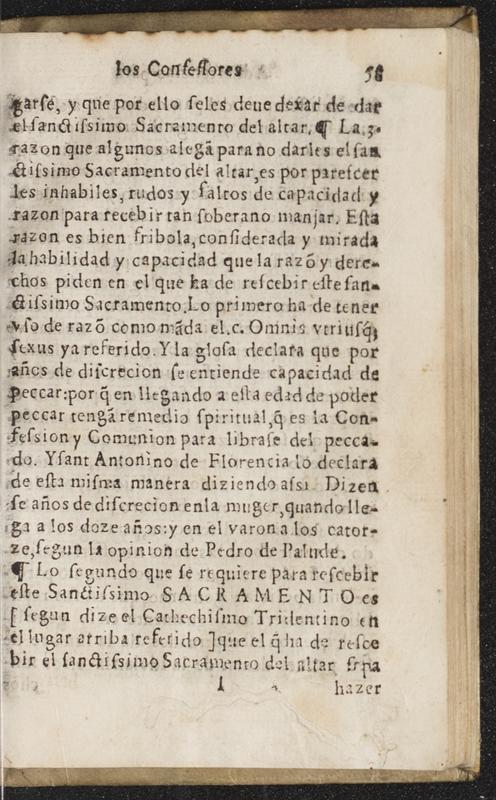 los Confessores 58
garse, y que por ello seles deue dexar de dar
el sanctissimo Sacramento del altar. ¶ La 3.
razon que algunos alegã para no darles el san
ctissimo Sacramento del altar, es por parescer
les inhabiles, rudos y faltos de capacidad y
razon para recebir tan soberano manjar. Esta
razon es bien fribola, considerada y mirada
la habilidad y capacidad que la razõ y dere-
chos piden en el que ha de rescebir este san-
ctissimo Sacramento. Lo primero ha de tener
vso de razõ como mãda el. c. Omnis vtriusq̃;
sexus ya referido. Y la glosa declara que por
años de discrecion se entiende capacidad de
peccar: por q̃ en llegando a esta edad de poder
peccar tengã remedio spiritual, q̃ es la Con-
fession y Comunion para librase del pecca-
do. Y sant Antonino de Florencia lo declara
de esta misma manera diziendo assi. Dizen
se años de discrecion enla muger, quando lle-
ga a los doze años: y en el varon a los cator-
ze, segun la opinion de Pedro de Palude.
¶ Lo segundo que se requiere para rescebir
este Sanctissimo SACRAMENTO es
[ segun dize el Cathechismo Tridentino en
el lugar arriba referido ] que el q̃ ha de resce
bir el sanctissimo Sacramento del altar sepa
hazer